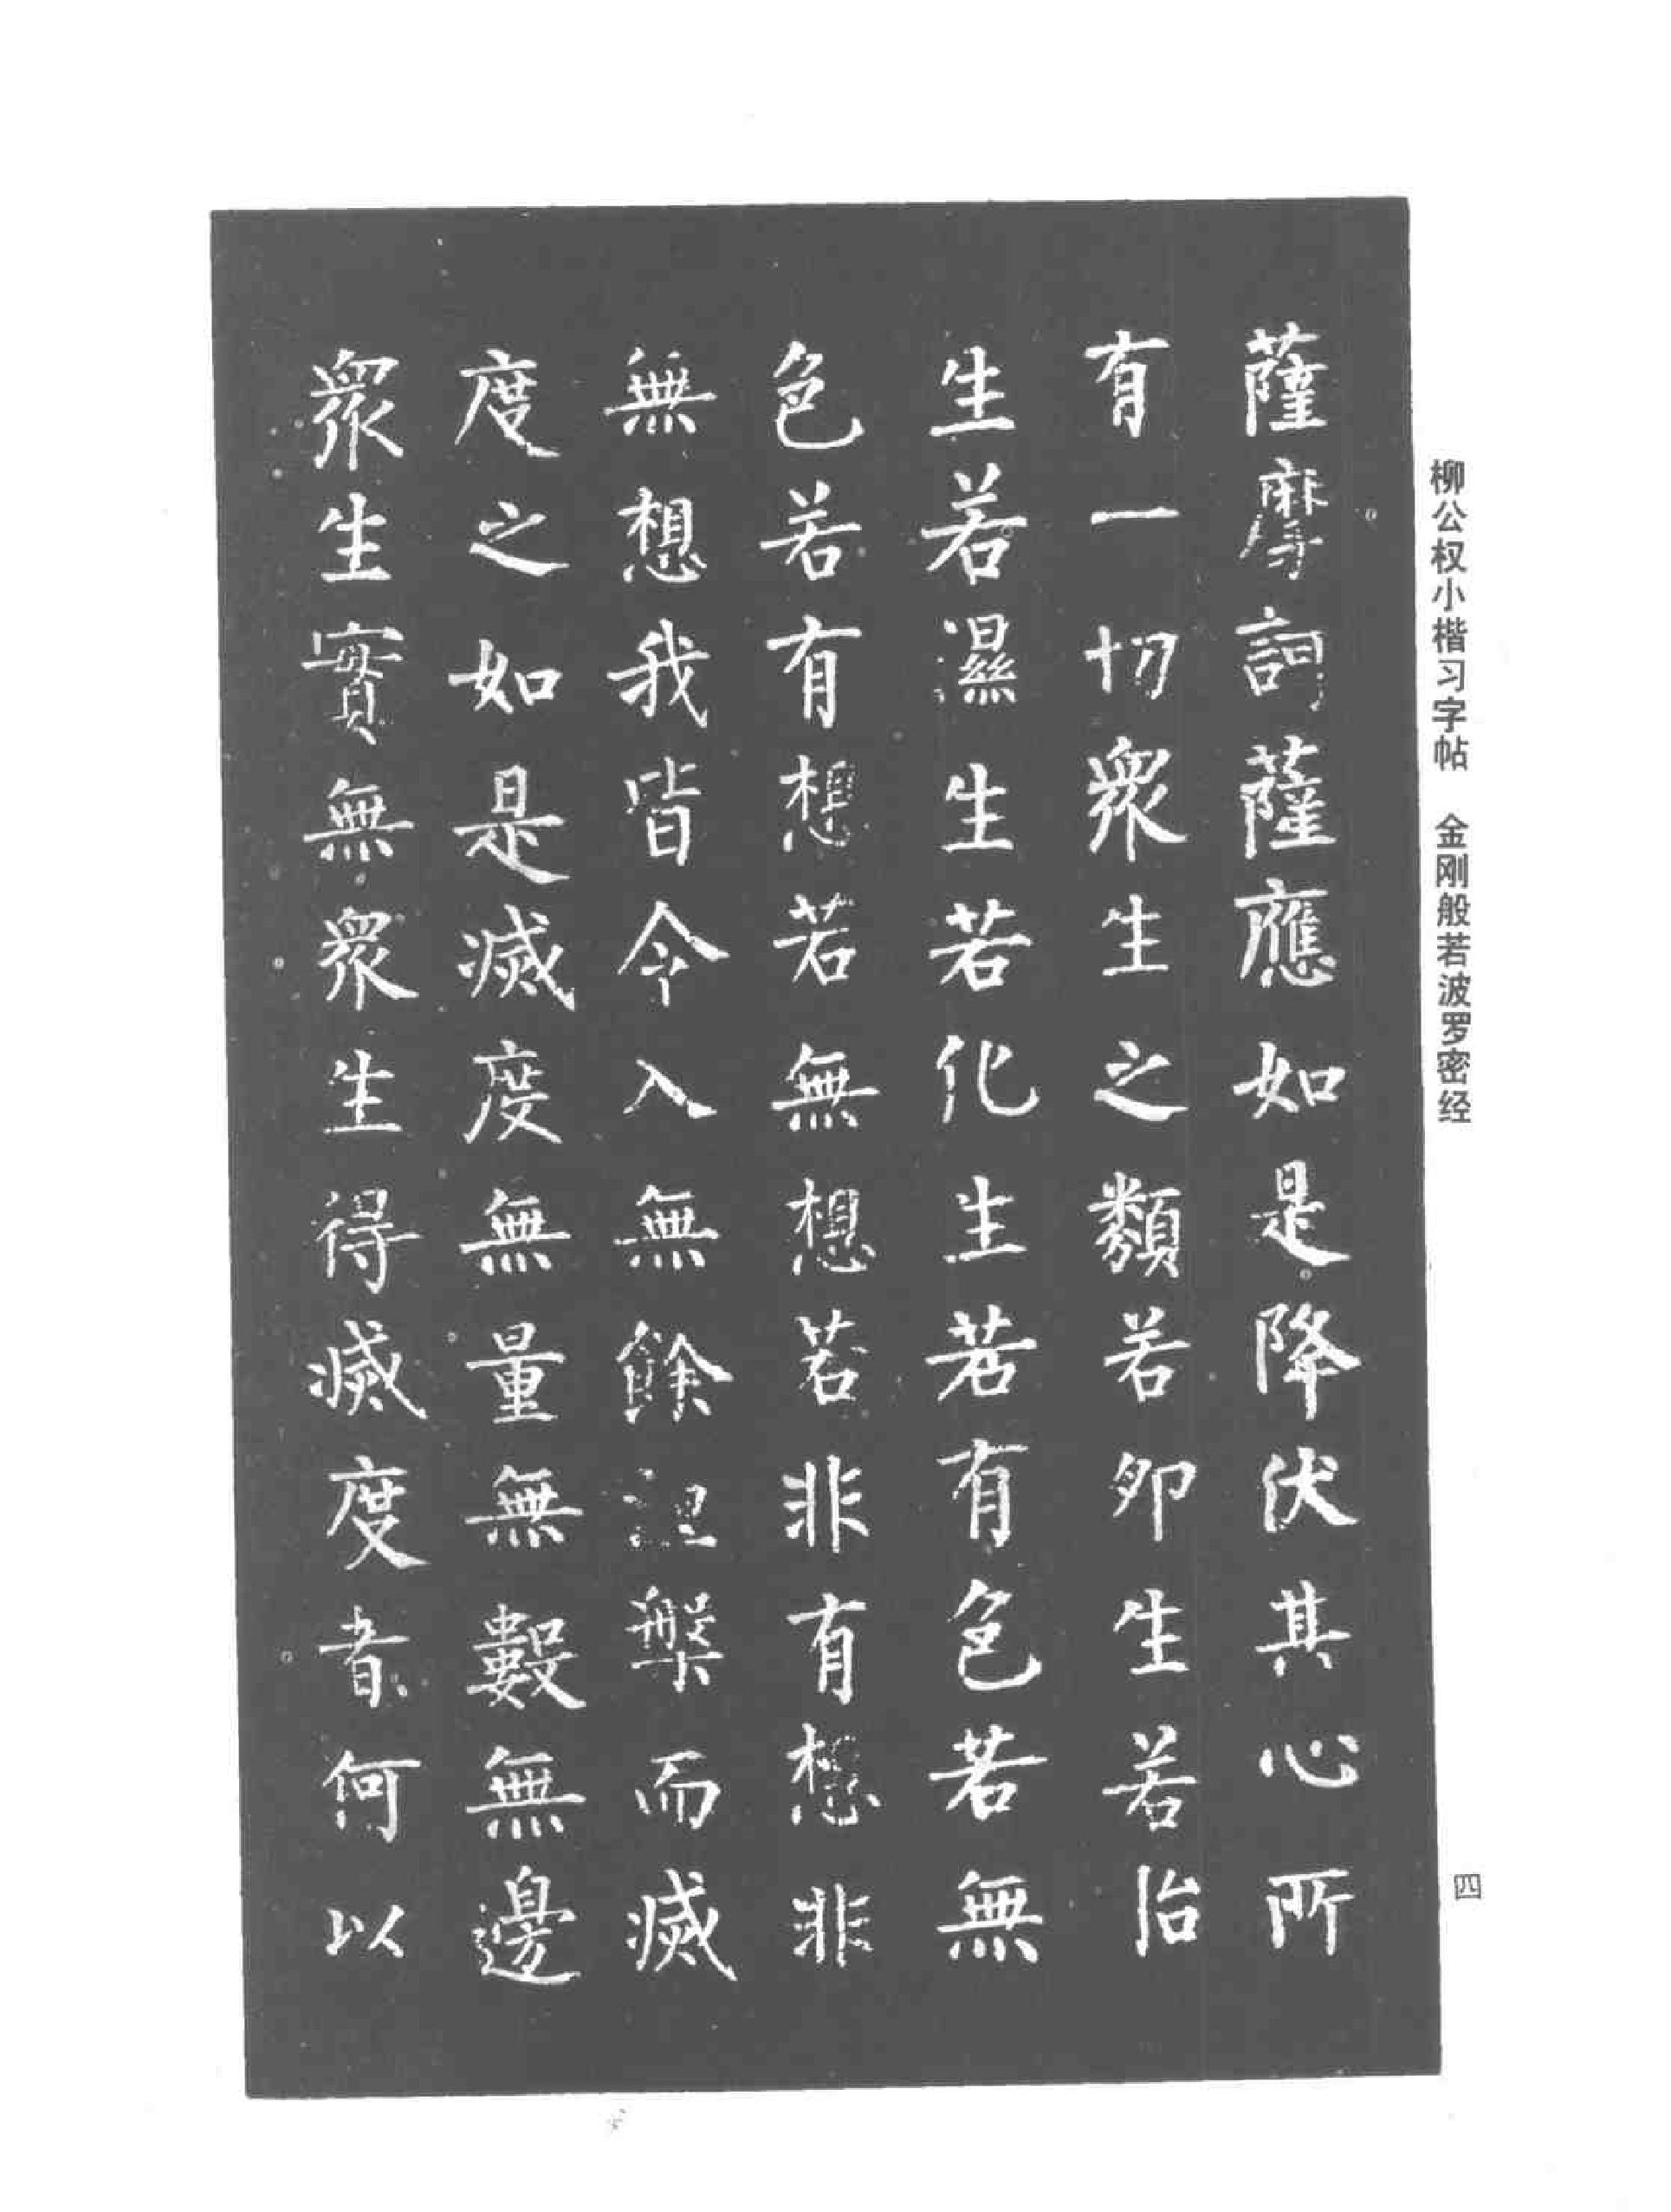 柳公权小楷习字帖　金刚般若波罗密经
薩摩訶薩應如是降伏其心所
有一切衆生之類若卵生若胎
生若濕生若化生若有色若無
色若有想若無想若非有想非
無想我皆令入無餘涅槃而滅
度之如是滅度無量無數無邊
衆生實無衆生得滅度者何以
四